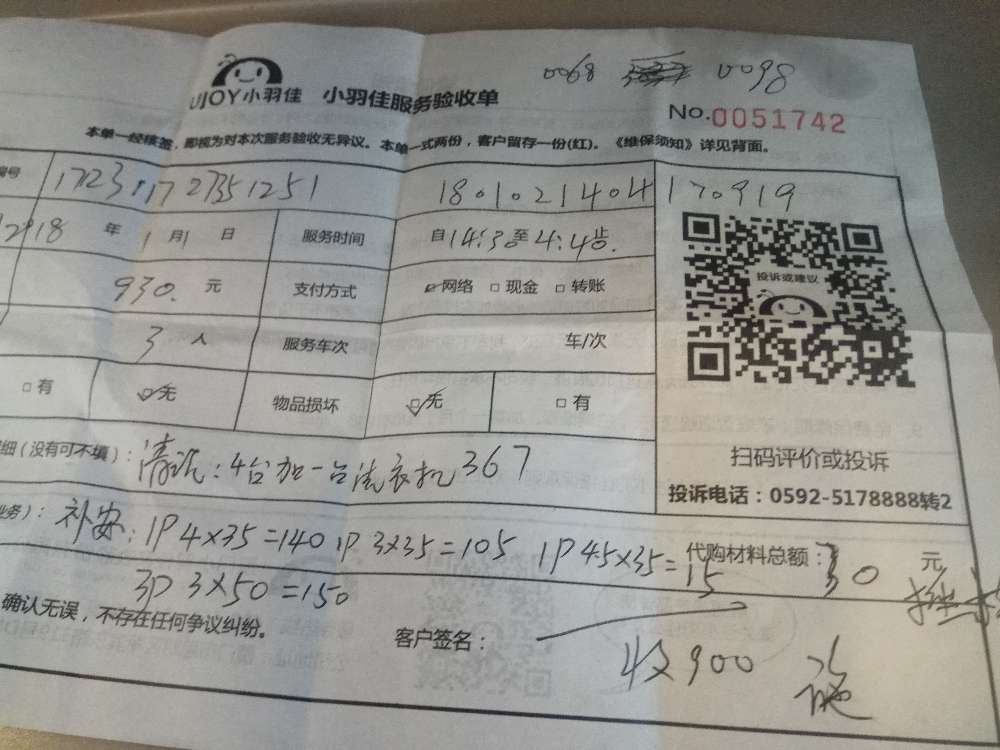 0068 0098
UJOY小羽佳 小羽佳服务验收单
No.0051742
本单一经核签，即视为对本次服务验收无异议。本单一式两份，客户留存一份(红)。《维保须知》详见背面。
编号 1801021404170919
18 年 1月1 日 服务时间 自14:30至4:40止
930. 元 支付方式 网络 现金 转账
投诉或建议
3 人 服务车次 车/次
有 无 物品损坏 无 有
细(没有可不填)： 清洗：4台加一台洗衣机367
扫码评价或投诉
投诉电话：0592-5178888转2
务)： 补安：1P 4×35=140 1P 3×35=105 1P 45×35=15 代购材料总额：30 元
3P 3×50=150
确认无误，不存在任何争议纠纷。 客户签名：
收900